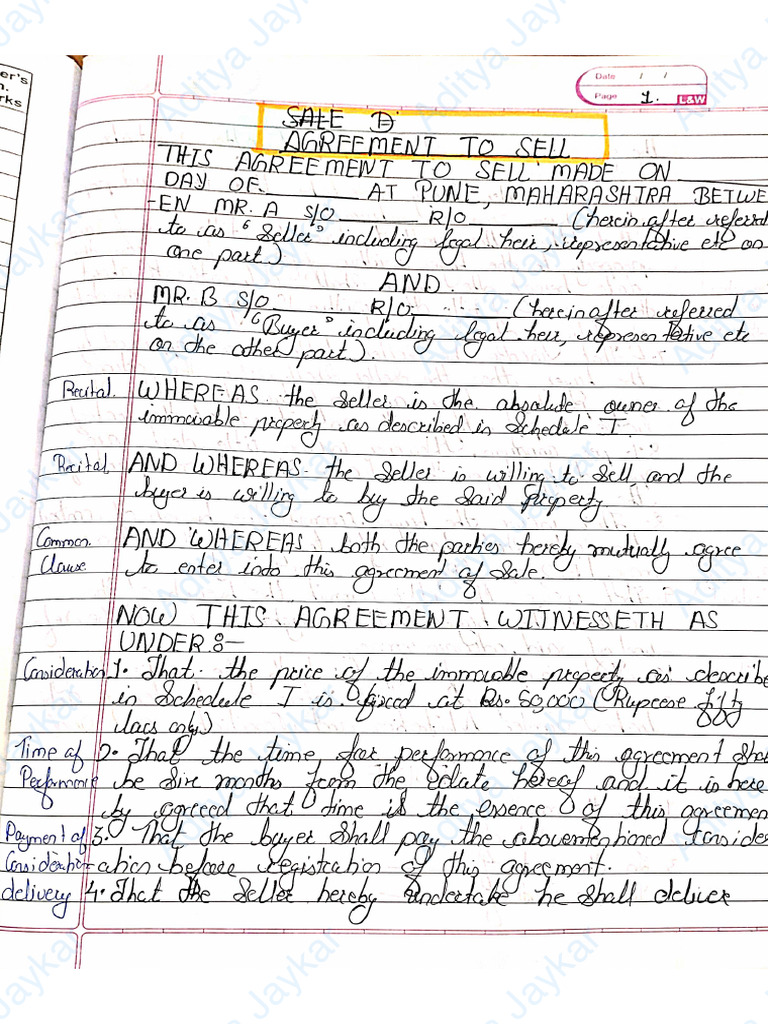 er's
n.
rks
Date / /
Page 1.
L&W
SALE D
AGREEMENT TO SELL
THIS AGREEMENT TO SELL MADE ON ______
DAY OF ______ AT PUNE, MAHARASHTRA BETWE
-EN MR. A S/O ______ R/O ______ (herein after referred
to as "Seller" including legal heir, representative etc on
one part)
AND
MR. B S/O ______ R/O ______ (hereinafter referred
to as "Buyer" including legal heir, representative etc
on the other part).
Recital. WHEREAS the seller is the absolute owner of the
immovable property as described in Schedule I.
Recital AND WHEREAS the seller is willing to sell and the
buyer is willing to buy the said property
Common AND WHEREAS both the parties hereby mutually agree
Clause to enter into this agreement of sale.
NOW THIS AGREEMENT WITNESSETH AS
UNDER :-
Consideration 1. That the price of the immovable property as describe
in Schedule I is fixed at Rs. 50,000 (Rupeese fifty
lacs only)
Time of 2. That the time for performance of this agreement Shal
Performance be six months from the date hereof and it is here
by agreed that time is the essence of this agreemen
Payment of 3. That the buyer shall pay the abovementioned Consider
Consideration -ation before registration of this agreement.
delivery 4. That the seller hereby undertake he shall deliver
Aditya Jaykar